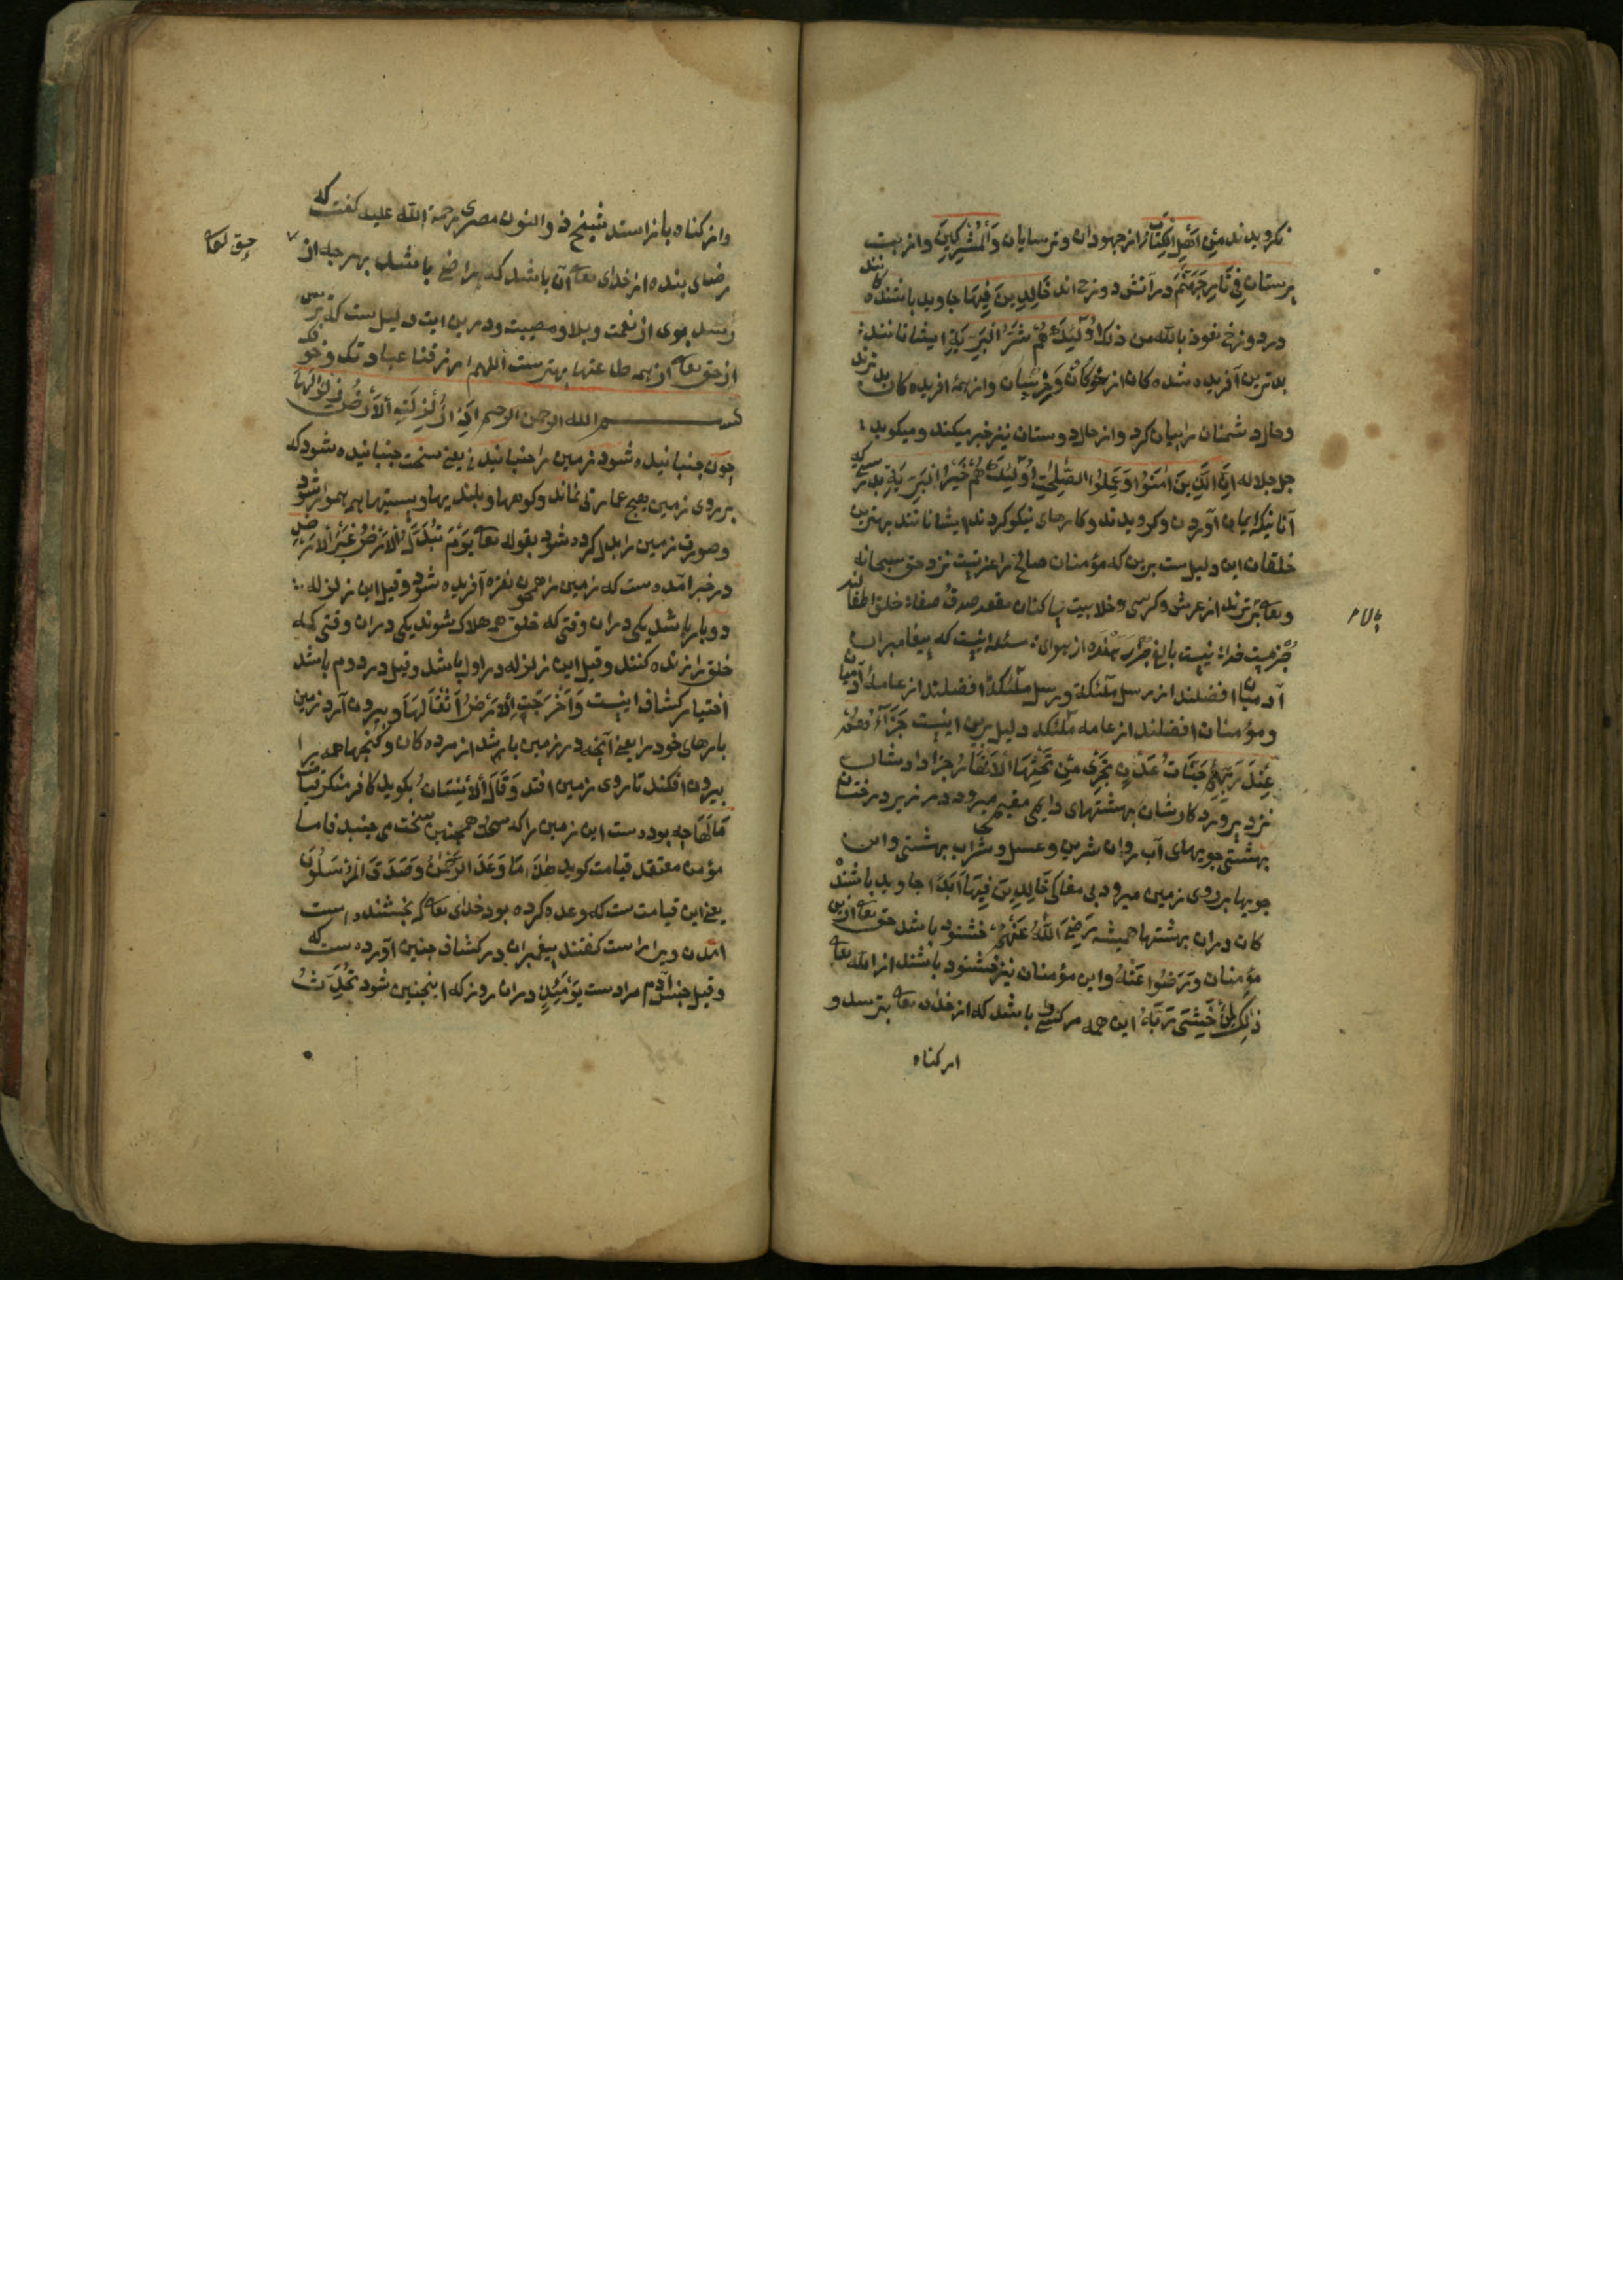 نکرویدند مِنْ اَهْلِ الْکِتَابِ از جهودان و ترسایان وَالْمُشْرِکِینَ و از بت
پرستان فِی نَارِ جَهَنَّمَ در آتش دوزخ اند خَالِدِینَ فِیهَا جاوید باشنده کانند
در دوزخ نعوذ بالله من ذلک اُولٰئِکَ هُمْ شَرُّ الْبَرِیَّةِ ایشانانند
بدترین آفریده شده کان از خوکان و خرسان و از همهٔ افریده کان بدترند
وحال دشمنان را بیان کرد و از حال دوستان نیز خبر میکند و میکوید
جل جلاله اِنَّ الَّذِینَ اٰمَنُوا وَعَمِلُوا الصّٰلِحٰتِ اُولٰئِکَ هُمْ خَیْرُ الْبَرِیَّةِ بدرستی که
آنانیکه ایمان آوردن و کرویدند و کارهای نیکو کردند ایشانانند بهترین
خلقان این دلیل ست برین که مؤمنان صالح را عزتیست نزد حق سبحانه
وتعالی برترند از عرش و کرسی و خلا بیت پاکنان مقعد صدق صفا خلق اطفالند
جز مست خدا نیست بالغ جز رهنده از هوای مسئله اینست که پیغامبران
آدمیان افضلند از رسل ملئکة و رسل ملئکة افضلند از عامهٔ آدمیان
و مؤمنان افضلند از عامه ملئکه دلیل برین اینست جَزَآؤُهُمْ
عِنْدَ رَبِّهِمْ جَنَّاتُ عَدْنٍ تَجْرِی مِنْ تَحْتِهَا الْاَنْهَارُ جزا دادشان
نزد پرورد کارشان بهشتهای دایمی مقیم میرود در زیر درختان
بهشتی جویهای آب روان شیر و عسل و شراب بهشتی و این
جویها بر روی زمین میرود بی مغاکی خَالِدِینَ فِیهَا اَبَدًا جاوید باشنده
کان دران بهشتها همیشه رَضِیَ اللّٰهُ عَنْهُمْ خشنود باشد حق تعالی ازین
مؤمنان وَرَضُوا عَنْهُ و این مؤمنان نیز خشنود باشند از الله تعالی
ذٰلِکَ لِمَنْ خَشِیَ رَبَّهُ این همه مر کسی را باشد که از خدای تعالی بترسد و
از کناه
و از کناه باز استد شیخ ذو النون مصری رحمة الله علیه کفت که
رضای بنده از خدای تعالی آن باشد که راضی باشد بهر چه از
حق تعالی
رسد بوی از نعمت و بلا و مصیبت و درین ایت دلیل ست که ترس
از حق تعالی از همه طاعتها بهتر ست اللهم ارزقنا عبادتک وخوفک
بسم الله الرحمن الرحیم اِذَا زُلْزِلَتِ الْاَرْضُ زِلْزَالَهَا
چون جنبانیده شود زمین را جنبانیدنی یعنی سخت جنبانیده شود که
بر روی زمین هیچ عمارتی نماند و کوهها و بلندیها و پستیها همه هموار شود
و صورت زمین را بدل کرده شود بقوله تعالی یَوْمَ تُبَدَّلُ الْاَرْضُ غَیْرَ الْاَرْضِ
در خبر آمده ست که زمین را همچون نقره آفریده شود و قیل این زلزله
دو بار باشد یکی دران وقتی که خلق همه هلاک شوند یکی دران وقتی که
خلق را زنده کنند و قیل این زلزله در اول باشد و قیل در دوم باشد
اختیار کشاف اینست وَاَخْرَجَتِ الْاَرْضُ اَثْقَالَهَا و بیرون آرد زمین
بارهای خود را یعنی آنچه در زمین باشد از مرده کان و کنجها همه را
بیرون افکند تا روی زمین افتد وَقَالَ الْاِنْسَانُ بکوید کافر منکر قیامت
مَا لَهَا چه بوده ست این زمین را که همچنین سخت می جنبد فاما
مؤمن معتقد قیامت کوید هٰذَا مَا وَعَدَ الرَّحْمٰنُ وَصَدَقَ الْمُرْسَلُونَ
یعنی این قیامت ست که وعده کرده بود خدای تعالی که بخشنده است
امدن ویرا راست کفتند پیغمبران در کشاف چنین آورده ست که
و قیل جنس آدم مرادست یَوْمَئِذٍ دران روز که اینچنین شود تُحَدِّثُ